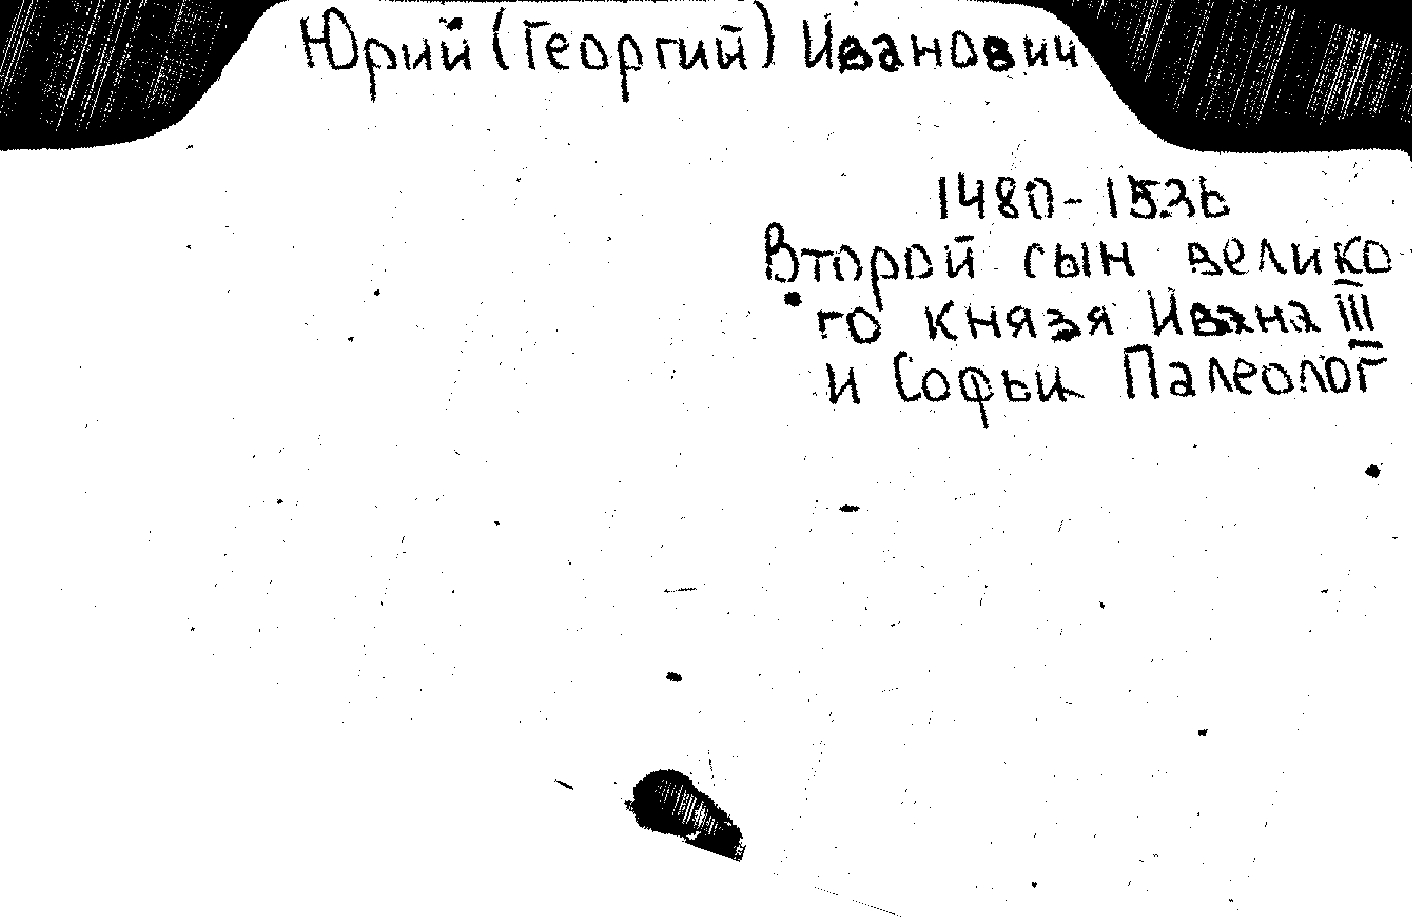 Юрий (Георгий) Иванович
1480-1536
Второй сын велико
го князя Ивана III
и Софьи Палеолог